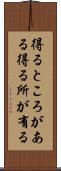 得るところがあ
る得る所が有る